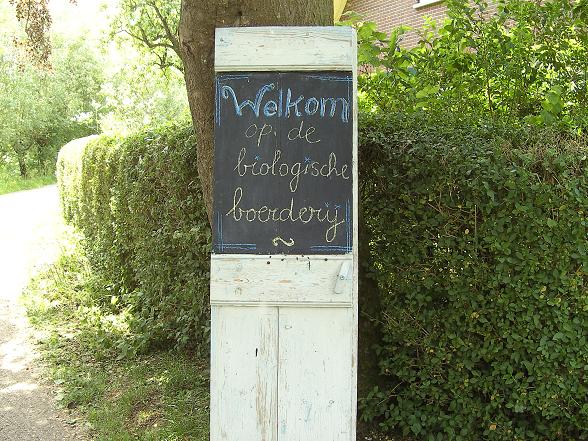 Welkom
op de
biologische
boerderij
~